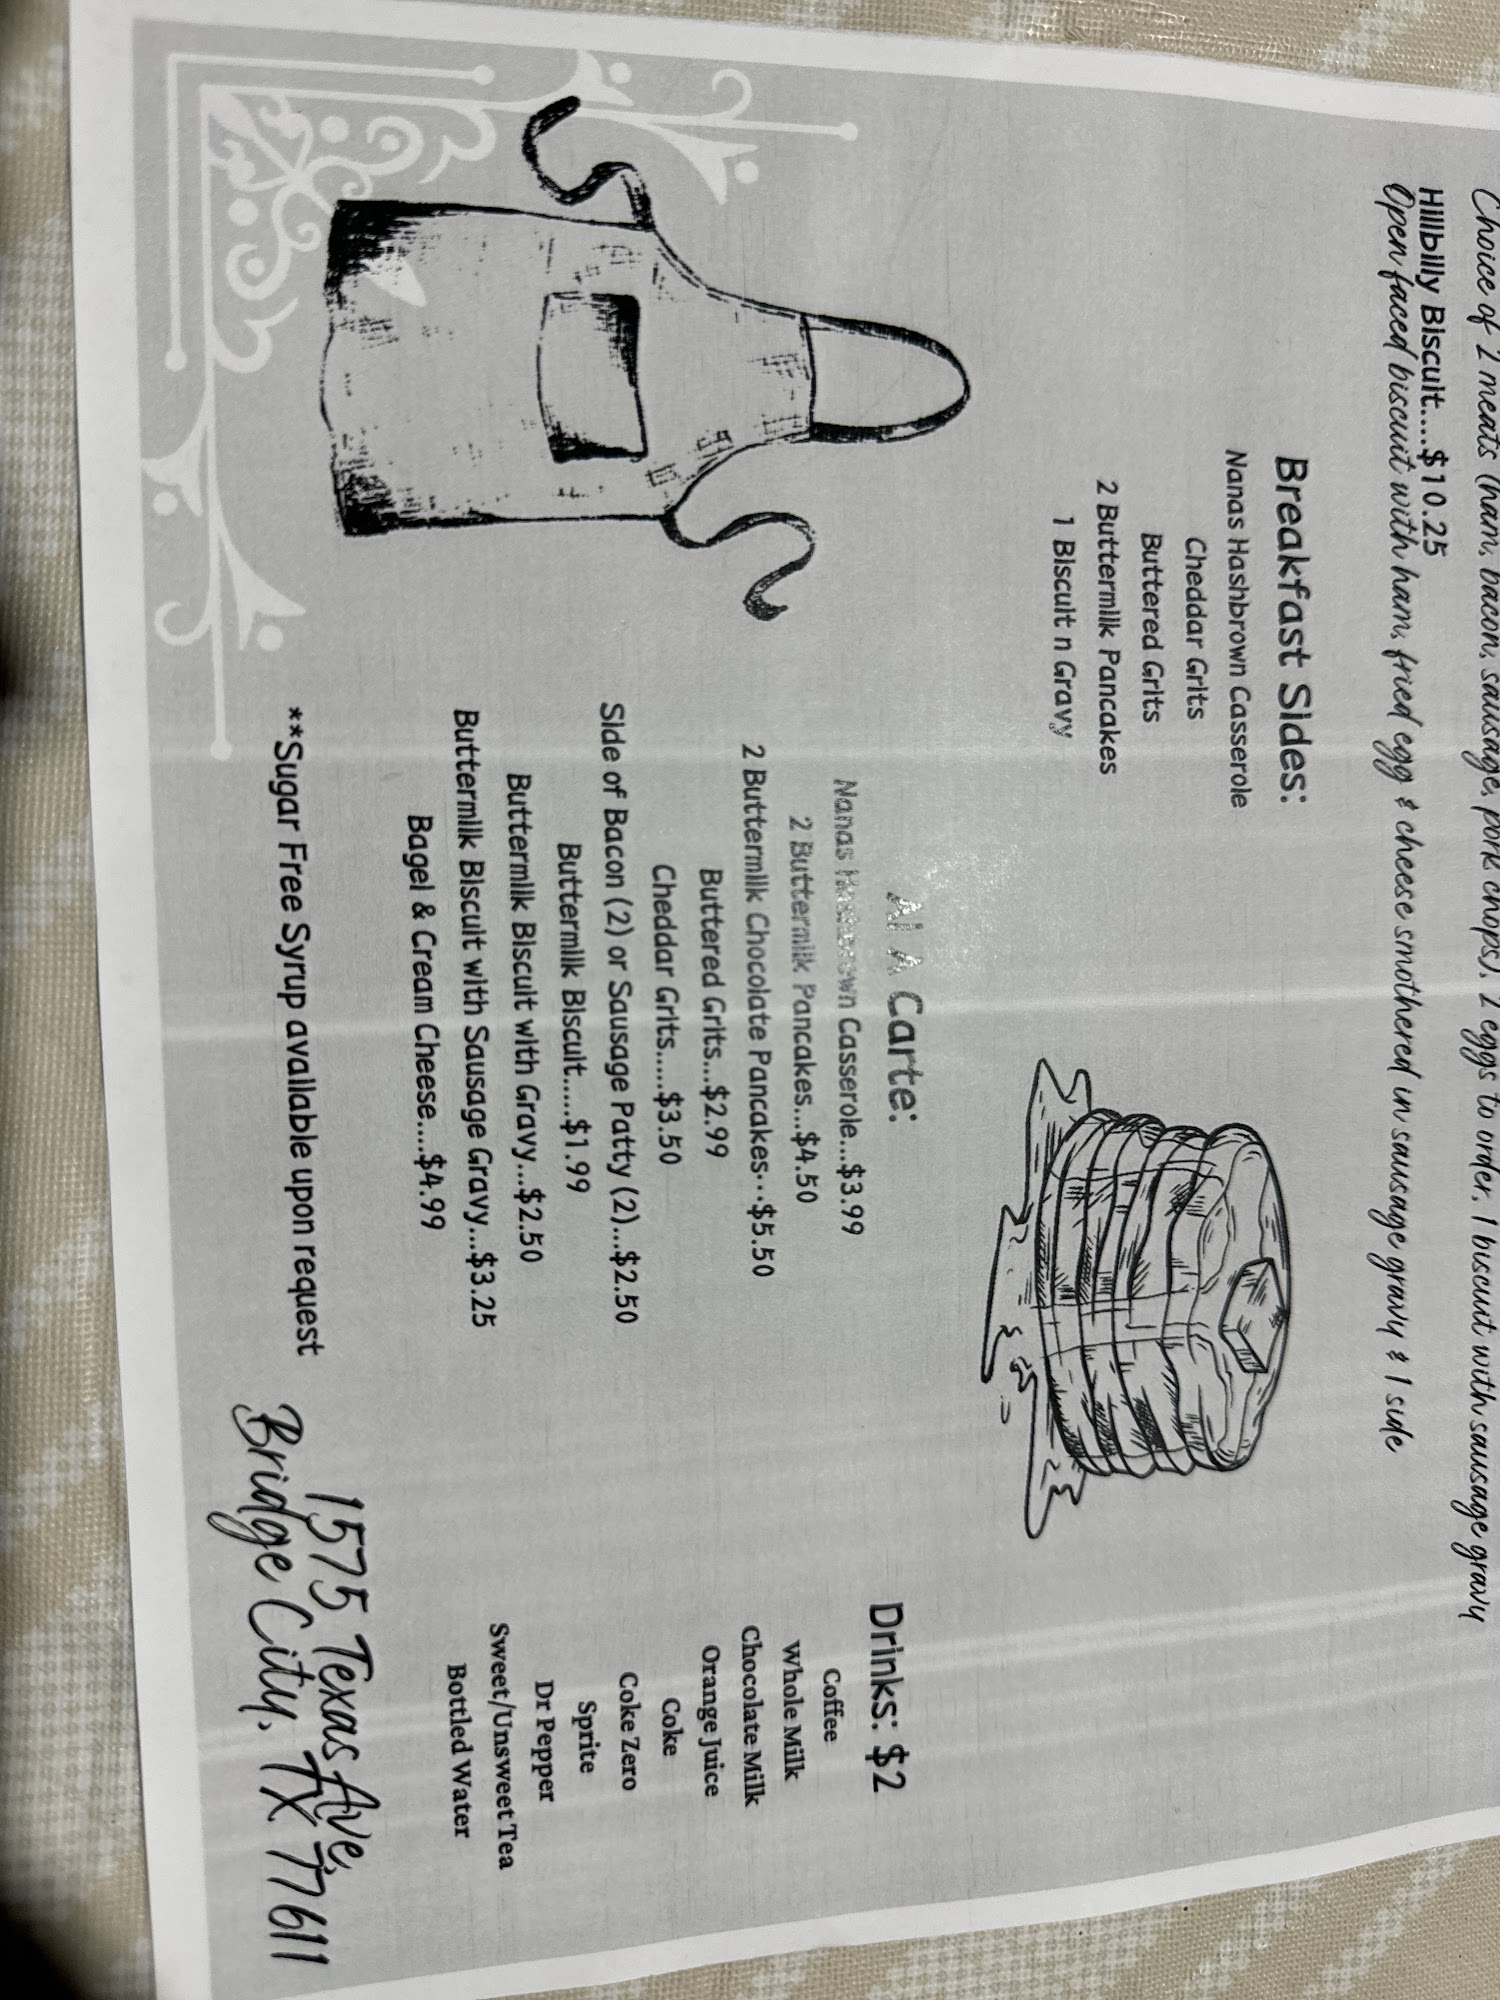 Choice of 2 meats (ham, bacon, sausage, pork chops), 2 eggs to order, 1 biscuit with sausage gravy
Hillbilly Biscuit....$10.25
Open faced biscuit with ham, fried egg & cheese smothered in sausage gravy & 1 side
Breakfast Sides:
Nanas Hashbrown Casserole
Cheddar Grits
Buttered Grits
2 Buttermilk Pancakes
1 Biscuit n Gravy
Al A Carte:
Nanas Hashbrown Casserole....$3.99
2 Buttermilk Pancakes...$4.50
2 Buttermilk Chocolate Pancakes...$5.50
Buttered Grits...$2.99
Cheddar Grits.....$3.50
Side of Bacon (2) or Sausage Patty (2)...$2.50
Buttermilk Biscuit.....$1.99
Buttermilk Biscuit with Gravy...$2.50
Buttermilk Biscuit with Sausage Gravy...$3.25
Bagel & Cream Cheese....$4.99
**Sugar Free Syrup available upon request
Drinks: $2
Coffee
Whole Milk
Chocolate Milk
Orange Juice
Coke
Coke Zero
Sprite
Dr Pepper
Sweet/Unsweet Tea
Bottled Water
1575 Texas Ave,
Bridge City, TX 77611